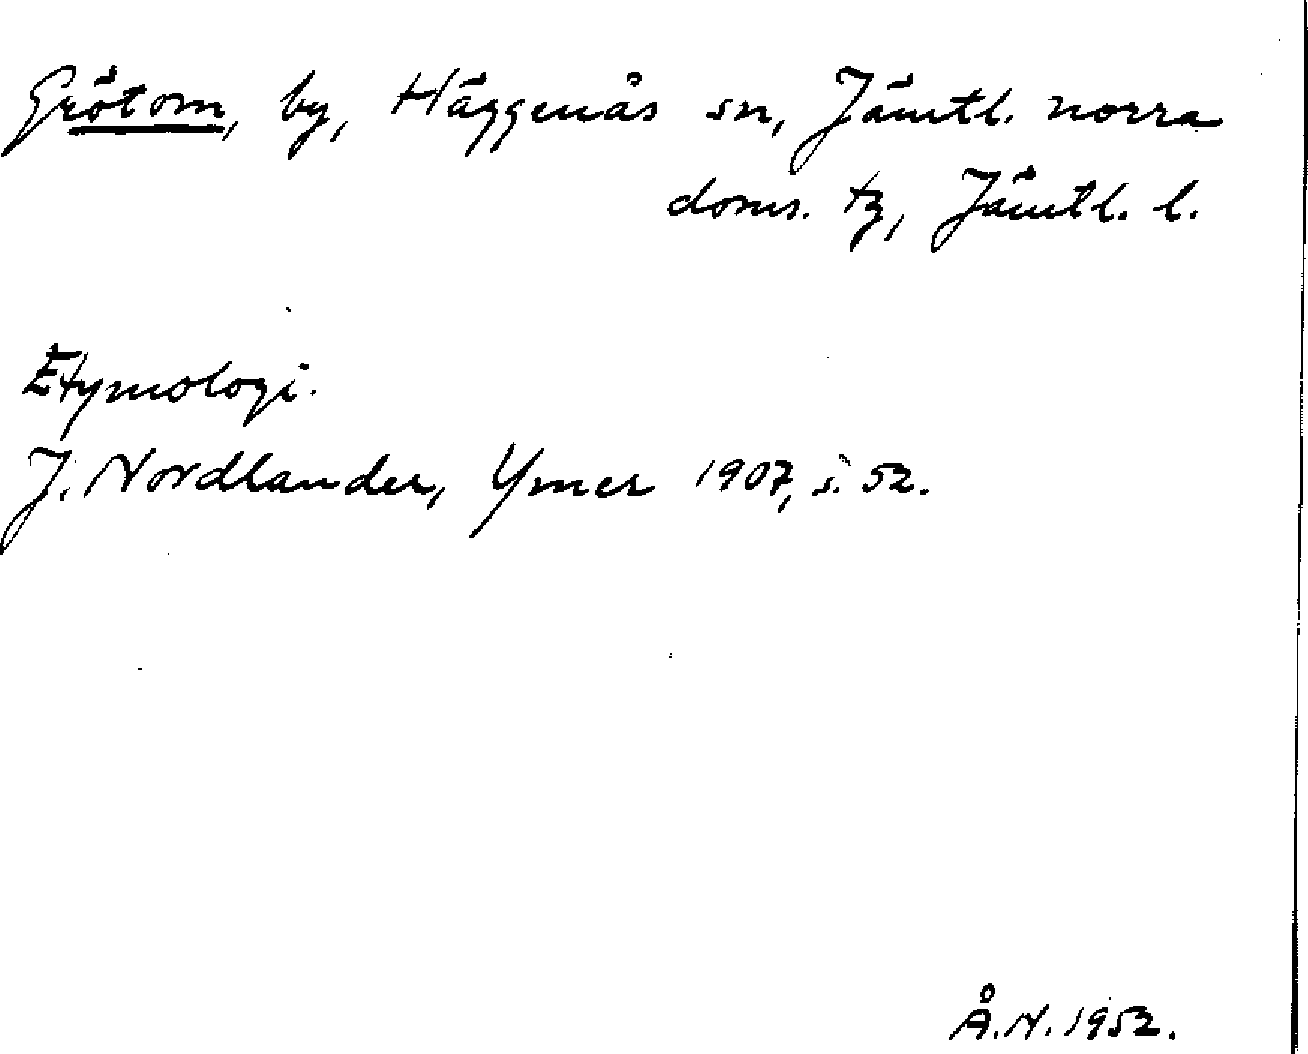 Grötom, by, Häggenås sn, Jämtl. norra
doms. tg, Jämtl. l.
Etymologi.
J. Nordlander, Ymer 1907, s. 52.
Å.N. 1952.